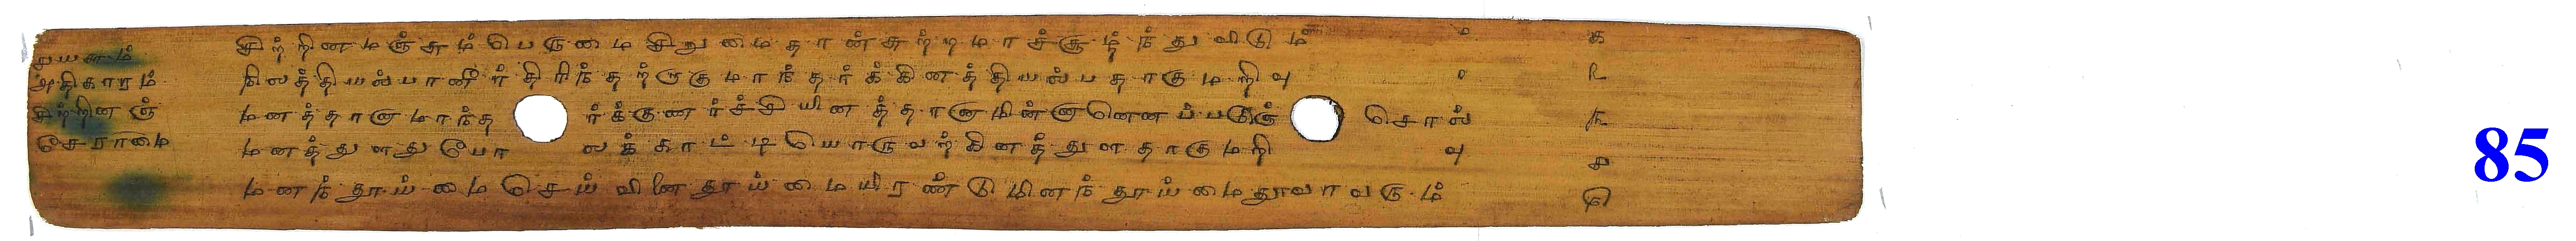 சிற்றினமஞ்சும்பெருமைசிறுமைதான்சுற்றமாச்சூழ்ந்துவிடும் ௧
அதிகாரம் நிலத்தியல்பானீர்திரிந்தற்றாகுமாந்தர்க்கினத்தியல்பதாகுமறிவு ௨
சிற்றினஞ் மனத்தாகுமாந்தர்க்குணர்ச்சியினத்தாகுமின்னானெனப்படுஞ்சொல் ௩
சேராமை மனத்துளதுபோலக்காட்டியொருவற்கினத்துளதாகுமறிவு ௪
மனந்தூய்மைசெய்வினைதூய்மையிரண்டுமினந்தூய்மைதூவாவரும் ௫
85